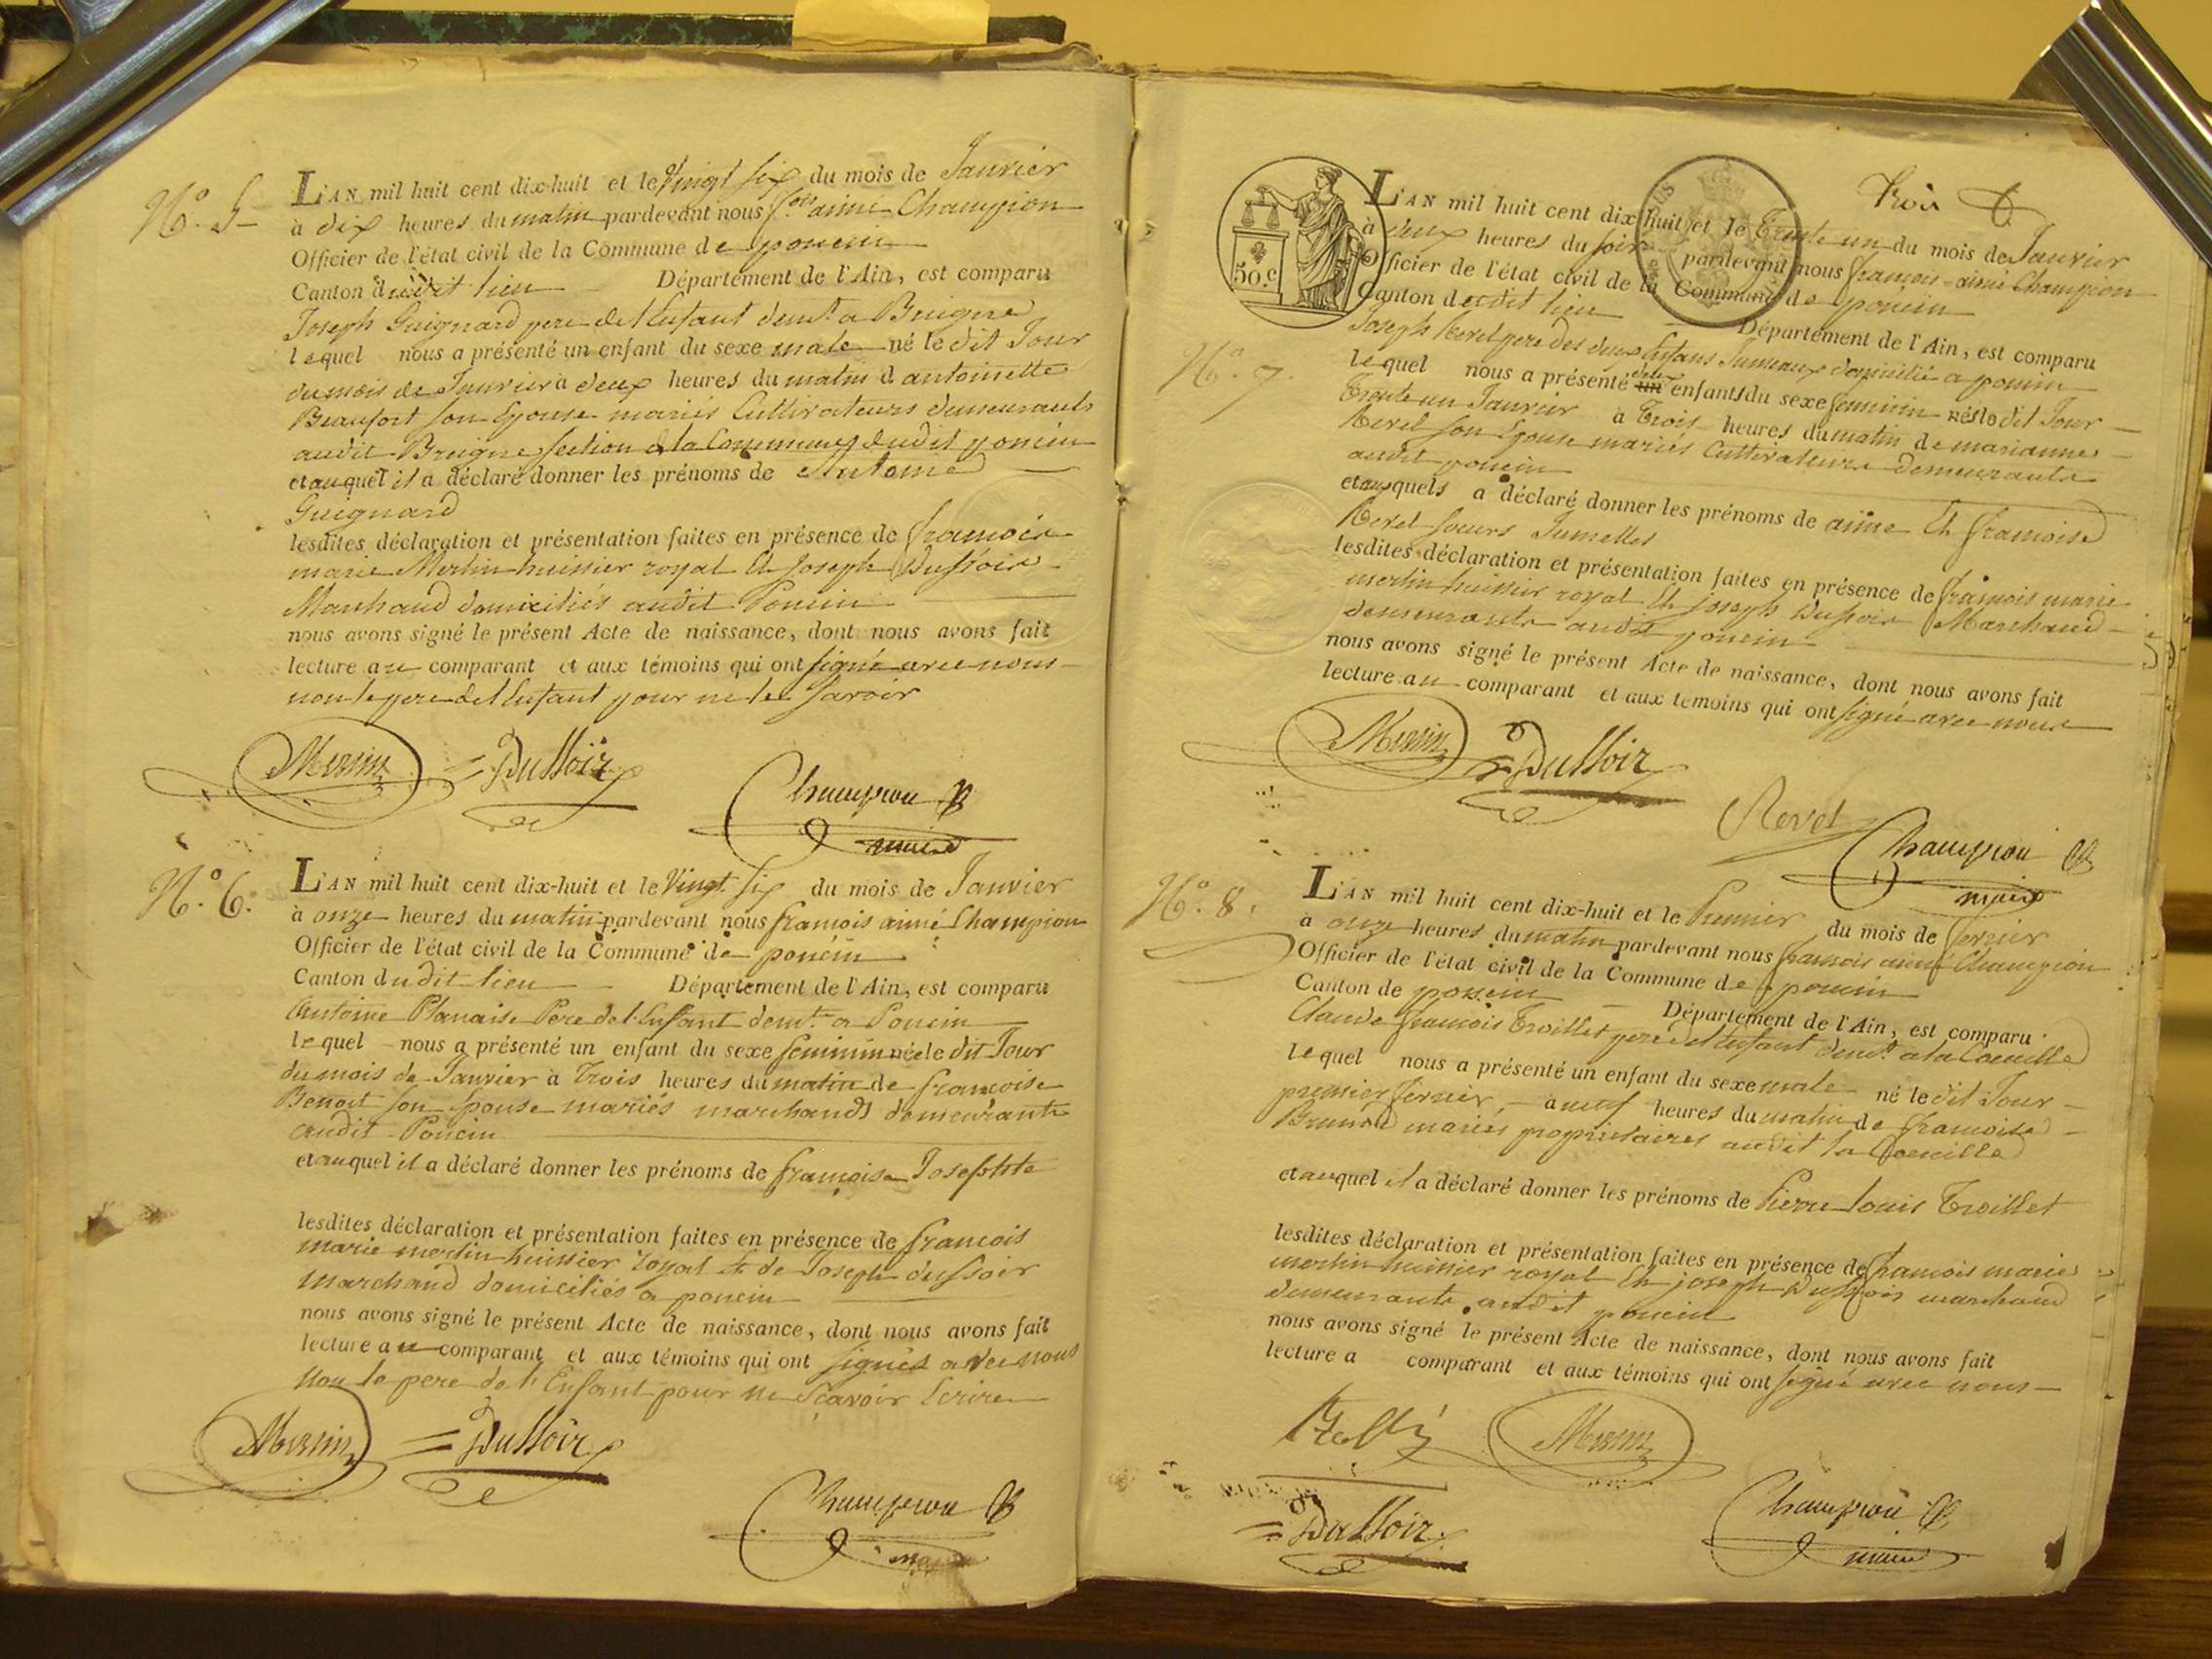 N.o 5
L'AN mil huit cent dix-huit et le Vingt six du mois de Janvier
à dix heures du matin pardevant nous f.ois aimé Champion
Officier de l'état civil de la Commune de poncin
Canton dudit lieu Département de l'Ain, est comparu
Joseph Guignard pere de l'Enfant demt. a Breigne
lequel nous a présenté un enfant du sexe male né le dit Jour
du mois de Janvier à deux heures du matin d'antoinette
Beaufort son Epouse mariés Cultivateurs demeurants
audit Breigne section de la Commune dudit poncin
et auquel il a déclaré donner les prénoms de Antoine
Guignard
lesdites déclaration et présentation faites en présence de francois
marie Merlin huissier royal Et Joseph Dussoir
Marchand domiciliés audit Poncin
nous avons signé le présent Acte de naissance, dont nous avons fait
lecture au comparant et aux témoins qui ont signé avec nous
non le pere de l'Enfant pour ne le savoir
Merlin = Dussoir
Champion
maire
N.o 6.
L'AN mil huit cent dix-huit et le Vingt six du mois de Janvier
à onze heures du matin pardevant nous francois aimé Champion
Officier de l'état civil de la Commune de poncin
Canton dudit lieu Département de l'Ain, est comparu
Antoine Planais Pere de l'Enfant demt. a Poncin
lequel nous a présenté un enfant du sexe feminin née le dit Jour
du mois de Janvier à Trois heures du matin de francoise
Benoit son Epouse mariés marchands demeurants
audit Poncin
et auquel il a déclaré donner les prénoms de francoise Josephte
lesdites déclaration et présentation faites en présence de francois
marie merlin huissier royal Et de Joseph dussoir
marchand domiciliés a poncin
nous avons signé le présent Acte de naissance, dont nous avons fait
lecture au comparant et aux témoins qui ont signés avec nous
Non le pere de l'Enfant pour ne Scavoir Ecrire
Merlin = Dussoir
Champion
maire
Trois
50.c
L'AN mil huit cent dix-huit et le Trente un du mois de Janvier
à deux heures du soir pardevant nous francois aimé Champion
Officier de l'état civil de la Commune de poncin
Canton dudit lieu Département de l'Ain, est comparu
Joseph Revel pere des deux Enfans Jumeaux domicilié a poncin
N.o 7.
lequel nous a présenté un deux enfants du sexe feminin nés le dit Jour
Trente un Janvier à Trois heures du matin de marianne
Revel son Epouse mariés Cultivateurs demeurants
audit poncin
et auxquels a déclaré donner les prénoms de aimé Et francoise
Revel soeurs Jumelles
lesdites déclaration et présentation faites en présence de francois marie
merlin huissier royal Et joseph Dussoir Marchand
demeurants audit poncin
nous avons signé le présent Acte de naissance, dont nous avons fait
lecture au comparant et aux témoins qui ont signé avec nous
Merlin = Dussoir
Revel
Champion
maire
N.o 8.
L'AN mil huit cent dix-huit et le Premier du mois de fevrier
à onze heures du matin pardevant nous francois aimé Champion
Officier de l'état civil de la Commune de poncin
Canton de poncin Département de l'Ain, est comparu
Claude francois Troillet pere de l'Enfant demt. a la
lequel nous a présenté un enfant du sexe male né le dit Jour
premier fevrier, a neuf heures du matin de francoise
mariés propriétaires audit la
et auquel il a déclaré donner les prénoms de Pierre louis Troillet
lesdites déclaration et présentation faites en présence de francois marie
merlin huissier royal Et joseph Dussoir marchand
demeurants audit poncin
nous avons signé le présent Acte de naissance, dont nous avons fait
lecture a comparant et aux témoins qui ont signé avec nous
Merlin
= Dussoir
Champion
maire